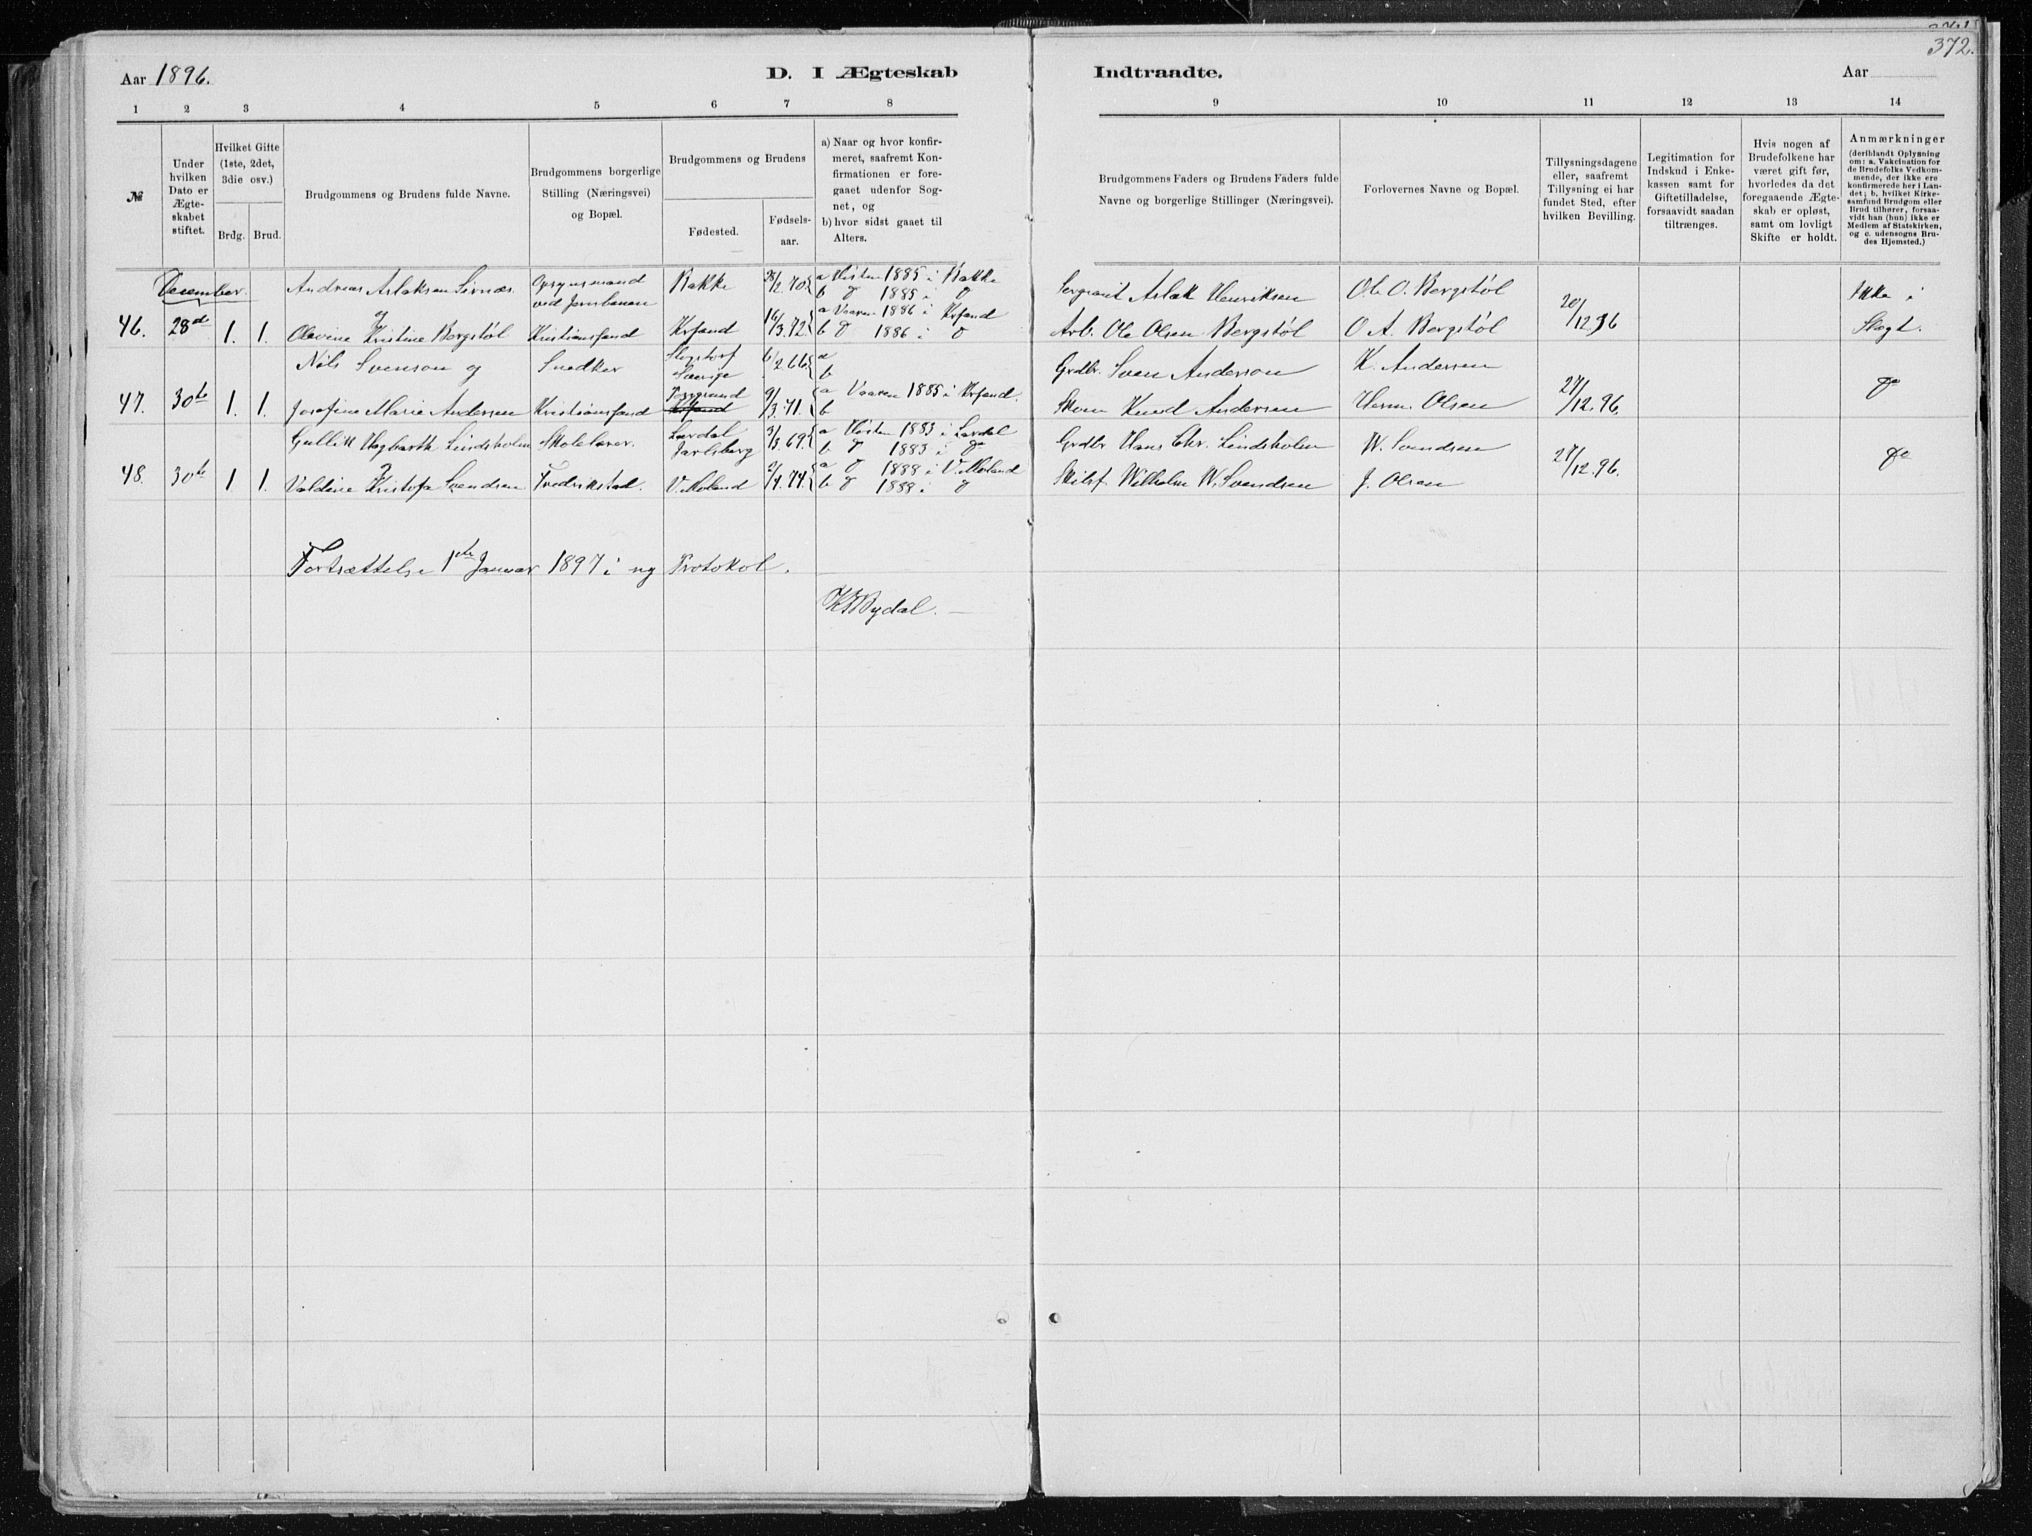 372.
Aar 1896.
D. I Ægteskab
Indtraadte.
Aar
1 2 3 4 5 6 7 8 9 10 11 12 13 14
№
Under hvilken Dato er Ægteskabet stiftet.
Hvilket Gifte (1ste, 2det, 3die osv.)
Brdg. Brud.
Brudgommens og Brudens fulde Navne.
Brudgommens borgerlige Stilling (Næringsvei) og Bopæl.
Brudgommens og Brudens
Fødested.
Fødsels-aar.
a) Naar og hvor konfirmeret, saafremt Konfirmationen er foregaaet udenfor Sognet, og
b) hvor sidst gaaet til Alters.
Brudgommens Faders og Brudens Faders fulde Navne og borgerlige Stillinger (Næringsvei).
Forlovernes Navne og Bopæl.
Tillysningsdagene eller, saafremt Tillysning ei har fundet Sted, efter hvilken Bevilling.
Legitimation for Indskud i Enkekassen samt for Giftetilladelse, forsaavidt saadan tiltrænges.
Hvis nogen af Brudefolkene har været gift før, hvorledes da det foregaaende Ægteskab er opløst, samt om lovligt Skifte er holdt.
Anmærkninger (deriblandt Oplysning om: a. Vakcination for de Brudefolks Vedkommende, der ikke ere konfirmerede her i Landet; b. hvilket Kirkesamfund Brudgom eller Brud tilhører, forsaavidt han (hun) ikke er Medlem af Statskirken, og c. udensogns Brudes Hjemsted.)
December.
Andreas Aslaksen Sirnæs Opsynsmand Bakke 2.70 a Høsten 1885 i Bakke Sergeant Aslak Henriksen Ole O. Bergstøl Ikke i
og ved Jernbanen b d 1885 i d 20/12.96
46. 28de 1. 1. Olevine Kristine Bergstøl Kristianssand Krsand 16/3.72 a Vaaren 1886 i Krsand b d 1886 i d Arb. Ole Olsen Bergstøl O A. Bergstøl Slægt.
Nils Svenson og Snedker Sverige 6/2 66 a b Grdbr. Sven Anderson K. Andersen
47. 30te 1. 1. Josefine Marie Andersen Kristianssand Porsgrund Krsand 9/3.71. a Vaaren 1885 i Krsand. b Skom Knud Andersen Herm. Olsen 27/12.96. do
Gullik Hagbarth Lindsholm Skolelærer. Lardal Jarlsberg 3/3 69 a Høsten 1883 i Lardal b d 1883 i do Grdbr Hans Chr. Lindsholm W. Svendsen
48. 30te 1. 1. Valdine Kristofa Svendsen Fredrikstad. V. Moland 2/4.74. a d 1888 i V. Moland b d 1888 i d Skibsf. Wilhelm W. Svendsen J. Olsen 27/12.96. do
Fortsættelse 1ste Januar 1897 i ny Protokol.